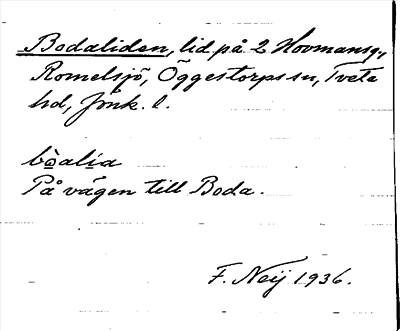 Bodaliden, lid på 2 Hovmansg.,
Romelsjö, Öggestorps sn, Tveta
hd, Jönk. l.
bòalia
På vägen till Boda.
F. Neij 1936.